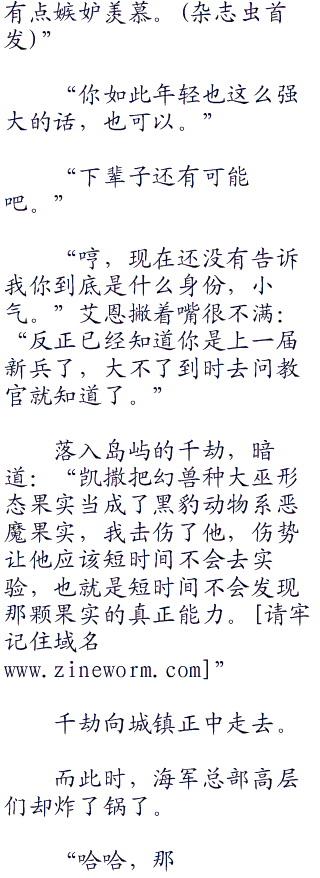 有点嫉妒羡慕。(杂志虫首
发)”
“你如此年轻也这么强
大的话，也可以。”
“下辈子还有可能
吧。”
“哼，现在还没有告诉
我你到底是什么身份，小
气。”艾恩撇着嘴很不满：
“反正已经知道你是上一届
新兵了，大不了到时去问教
官就知道了。”
落入岛屿的千劫，暗
道：“凯撒把幻兽种大巫形
态果实当成了黑豹动物系恶
魔果实，我击伤了他，伤势
让他应该短时间不会去实
验，也就是短时间不会发现
那颗果实的真正能力。[请牢
记住域名
www.zineworm.com]”
千劫向城镇正中走去。
而此时，海军总部高层
们却炸了锅了。
“哈哈，那